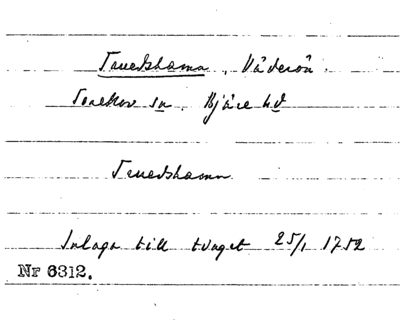 Truedshamn, Väderön.
Torekov sn, Bjäre hd
Truedshamn
Inlaga till tinget 25/1 1752
Nr 6312.